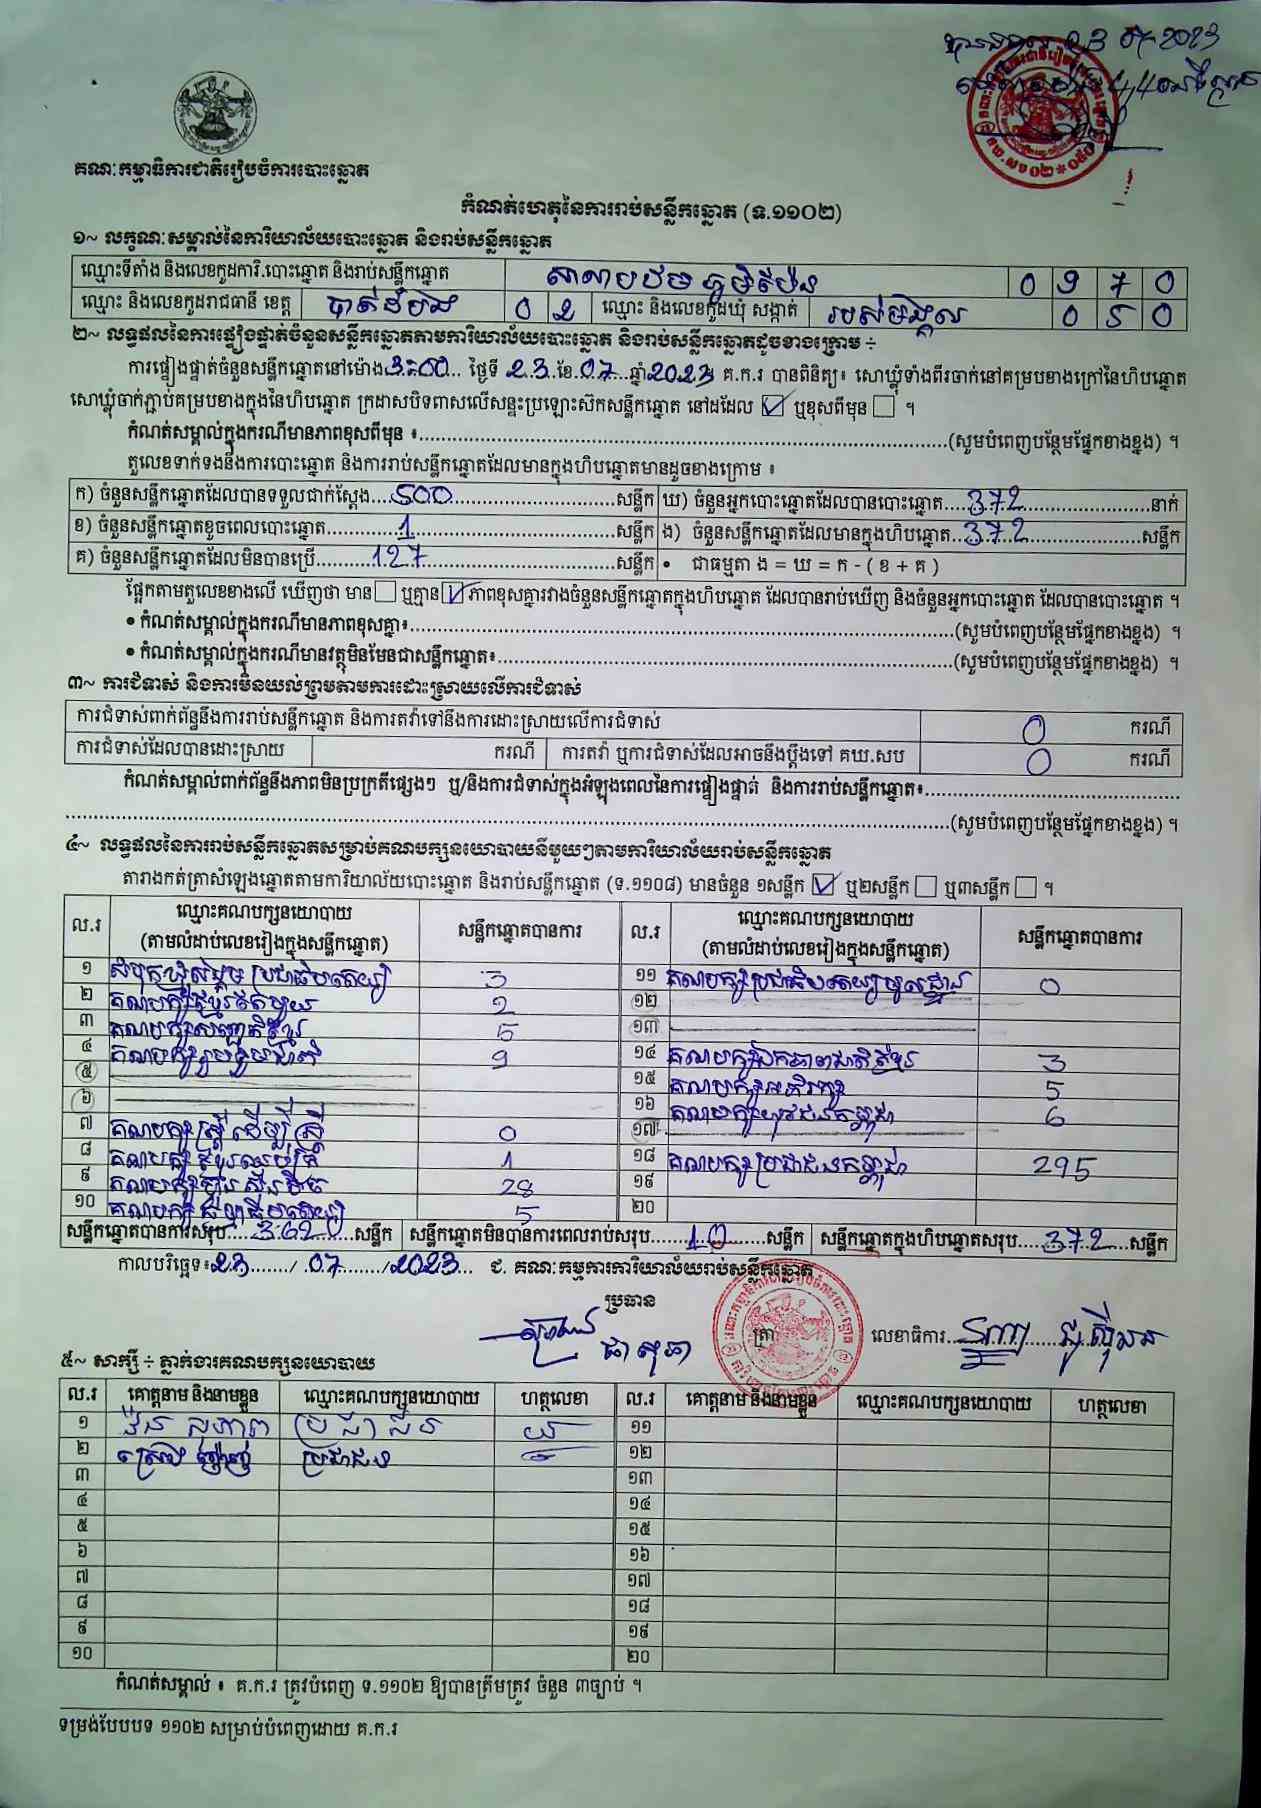 គណៈកម្មាធិការជាតិរៀបចំការបោះឆ្នោត
កំណត់ហេតុនៃការរាប់សន្លឹកឆ្នោត (ទ.១១០២)
១~ លក្ខណៈសម្គាល់នៃការិយាល័យបោះឆ្នោត និងរាប់សន្លឹកឆ្នោត
ឈ្មោះទីតាំង និងលេខកូដការិ.បោះឆ្នោត និងរាប់សន្លឹកឆ្នោត សាលាបឋម ភូមិ 0 9 7 0
ឈ្មោះ និងលេខកូដរាជធានី ខេត្ត បាត់ដំបង 0 2 ឈ្មោះ និងលេខកូដឃុំ សង្កាត់ របស់មង្គល 0 5 0
២~ លទ្ធផលនៃការផ្ទៀងផ្ទាត់ចំនួនសន្លឹកឆ្នោតតាមការិយាល័យបោះឆ្នោត និងរាប់សន្លឹកឆ្នោតដូចខាងក្រោម ÷
ការផ្ទៀងផ្ទាត់ចំនួនសន្លឹកឆ្នោតនៅម៉ោង 3:00 ថ្ងៃទី 23 ខែ 07 ឆ្នាំ 2023 គ.ក.រ បានពិនិត្យ៖ សោឃ្លុំទាំងពីរចាក់នៅគម្របខាងក្រៅនៃហិបឆ្នោត
សោឃ្លុំចាក់ភ្ជាប់គម្របខាងក្នុងនៃហិបឆ្នោត ក្រដាសបិទពាសលើសន្ទះប្រឡោះស៊កសន្លឹកឆ្នោត នៅដដែល ☑ ឬខុសពីមុន ☐ ។
កំណត់សម្គាល់ក្នុងករណីមានភាពខុសពីមុន ៖ (សូមបំពេញបន្ថែមផ្នែកខាងខ្នង) ។
តួលេខទាក់ទងនឹងការបោះឆ្នោត និងការរាប់សន្លឹកឆ្នោតដែលមានក្នុងហិបឆ្នោតមានដូចខាងក្រោម ៖
ក) ចំនួនសន្លឹកឆ្នោតដែលបានទទួលជាក់ស្តែង 500 សន្លឹក ឃ) ចំនួនអ្នកបោះឆ្នោតដែលបានបោះឆ្នោត 372 នាក់
ខ) ចំនួនសន្លឹកឆ្នោតខូចពេលបោះឆ្នោត 1 សន្លឹក ង) ចំនួនសន្លឹកឆ្នោតដែលមានក្នុងហិបឆ្នោត 372 សន្លឹក
គ) ចំនួនសន្លឹកឆ្នោតដែលមិនបានប្រើ 127 សន្លឹក • ជាធម្មតា ង = ឃ = ក - ( ខ + គ )
ផ្អែកតាមតួលេខខាងលើ ឃើញថា មាន ☐ ឬគ្មាន ☑ ភាពខុសគ្នារវាងចំនួនសន្លឹកឆ្នោតក្នុងហិបឆ្នោត ដែលបានរាប់ឃើញ និងចំនួនអ្នកបោះឆ្នោត ដែលបានបោះឆ្នោត ។
• កំណត់សម្គាល់ក្នុងករណីមានភាពខុសគ្នា៖ (សូមបំពេញបន្ថែមផ្នែកខាងខ្នង) ។
• កំណត់សម្គាល់ក្នុងករណីមានវត្ថុមិនមែនជាសន្លឹកឆ្នោត៖ (សូមបំពេញបន្ថែមផ្នែកខាងខ្នង) ។
៣~ ការជំទាស់ និងការមិនយល់ព្រមតាមការដោះស្រាយលើការជំទាស់
ការជំទាស់ពាក់ព័ន្ធនឹងការរាប់សន្លឹកឆ្នោត និងការតវ៉ាទៅនឹងការដោះស្រាយលើការជំទាស់ 0 ករណី
ការជំទាស់ដែលបានដោះស្រាយ ករណី ការតវ៉ា ឬការជំទាស់ដែលអាចនឹងប្តឹងទៅ គឃ.សប 0 ករណី
កំណត់សម្គាល់ពាក់ព័ន្ធនឹងភាពមិនប្រក្រតីផ្សេងៗ ឬ/និងការជំទាស់ក្នុងអំឡុងពេលនៃការផ្ទៀងផ្ទាត់ និងការរាប់សន្លឹកឆ្នោត៖
(សូមបំពេញបន្ថែមផ្នែកខាងខ្នង) ។
៤~ លទ្ធផលនៃការរាប់សន្លឹកឆ្នោតសម្រាប់គណបក្សនយោបាយនីមួយៗតាមការិយាល័យរាប់សន្លឹកឆ្នោត
តារាងកត់ត្រាសំឡេងឆ្នោតតាមការិយាល័យបោះឆ្នោត និងរាប់សន្លឹកឆ្នោត (ទ.១១០៨) មានចំនួន ១សន្លឹក ☑ ឬ២សន្លឹក ☐ ឬ៣សន្លឹក ☐ ។
ល.រ ឈ្មោះគណបក្សនយោបាយ (តាមលំដាប់លេខរៀងក្នុងសន្លឹកឆ្នោត) សន្លឹកឆ្នោតបានការ ល.រ ឈ្មោះគណបក្សនយោបាយ (តាមលំដាប់លេខរៀងក្នុងសន្លឹកឆ្នោត) សន្លឹកឆ្នោតបានការ
១ សំបុកឃ្មុំសង្គមប្រជាធិបតេយ្យ 3 ១១ គណបក្សប្រជាធិបតេយ្យមូលដ្ឋាន 0
២ គណបក្សខ្មែរតែមួយ 2 ១២
៣ គណបក្សសញ្ជាតិខ្មែរ 5 ១៣
៤ គណបក្សរួបរួមជាតិ 9 ១៤ គណបក្សឯកភាពជាតិខ្មែរ 3
៥ ១៥ គណបក្ស 5
៦ ១៦ គណបក្សយុវជនកម្ពុជា 6
៧ គណបក្សស្ត្រីដើម្បីស្ត្រី 0 ១៧
៨ គណបក្ស 1 ១៨ គណបក្សប្រជាជនកម្ពុជា 295
៩ គណបក្សហ្វ៊ុនស៊ិនប៉ិច 28 ១៩
១០ គណបក្ស 5 ២០
សន្លឹកឆ្នោតបានការសរុប 362 សន្លឹក សន្លឹកឆ្នោតមិនបានការពេលរាប់សរុប 10 សន្លឹក សន្លឹកឆ្នោតក្នុងហិបឆ្នោតសរុប 372 សន្លឹក
កាលបរិច្ឆេទ៖ 23 / 07 / 2023 ជ. គណៈកម្មការការិយាល័យរាប់សន្លឹកឆ្នោត
ប្រធាន
ត្រា លេខាធិការ
៥~ សាក្សី ÷ ភ្នាក់ងារគណបក្សនយោបាយ
ល.រ គោត្តនាម និងនាមខ្លួន ឈ្មោះគណបក្សនយោបាយ ហត្ថលេខា ល.រ គោត្តនាម និងនាមខ្លួន ឈ្មោះគណបក្សនយោបាយ ហត្ថលេខា
១ ប្រជាជន ១១
២ ប្រជាជន ១២
៣ ១៣
៤ ១៤
៥ ១៥
៦ ១៦
៧ ១៧
៨ ១៨
៩ ១៩
១០ ២០
កំណត់សម្គាល់ ៖ គ.ក.រ ត្រូវបំពេញ ទ.១១០២ ឱ្យបានត្រឹមត្រូវ ចំនួន ៣ច្បាប់ ។
ទម្រង់បែបបទ ១១០២ សម្រាប់បំពេញដោយ គ.ក.រ